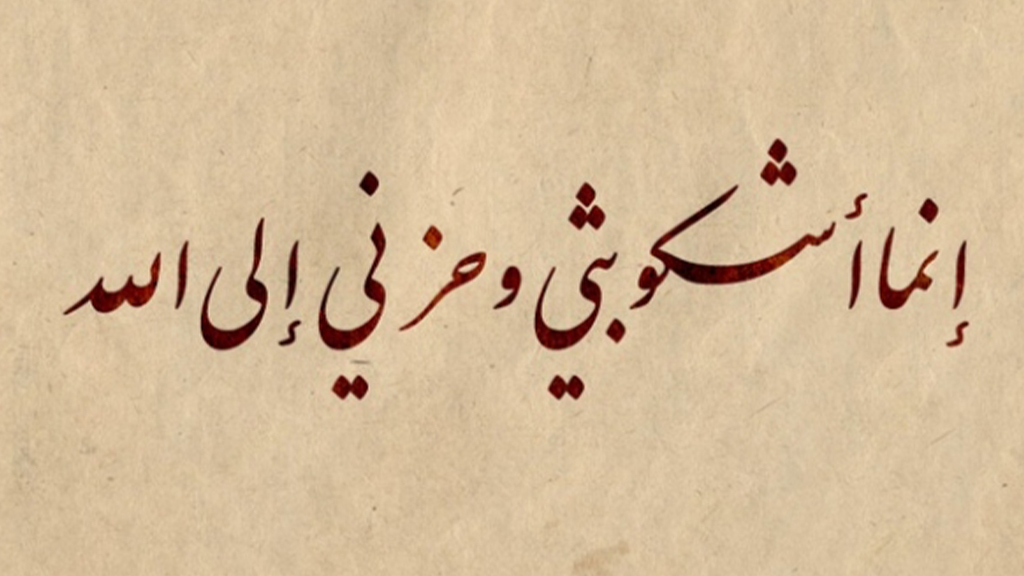 إنما أشكو بثي وحزني إلى الله